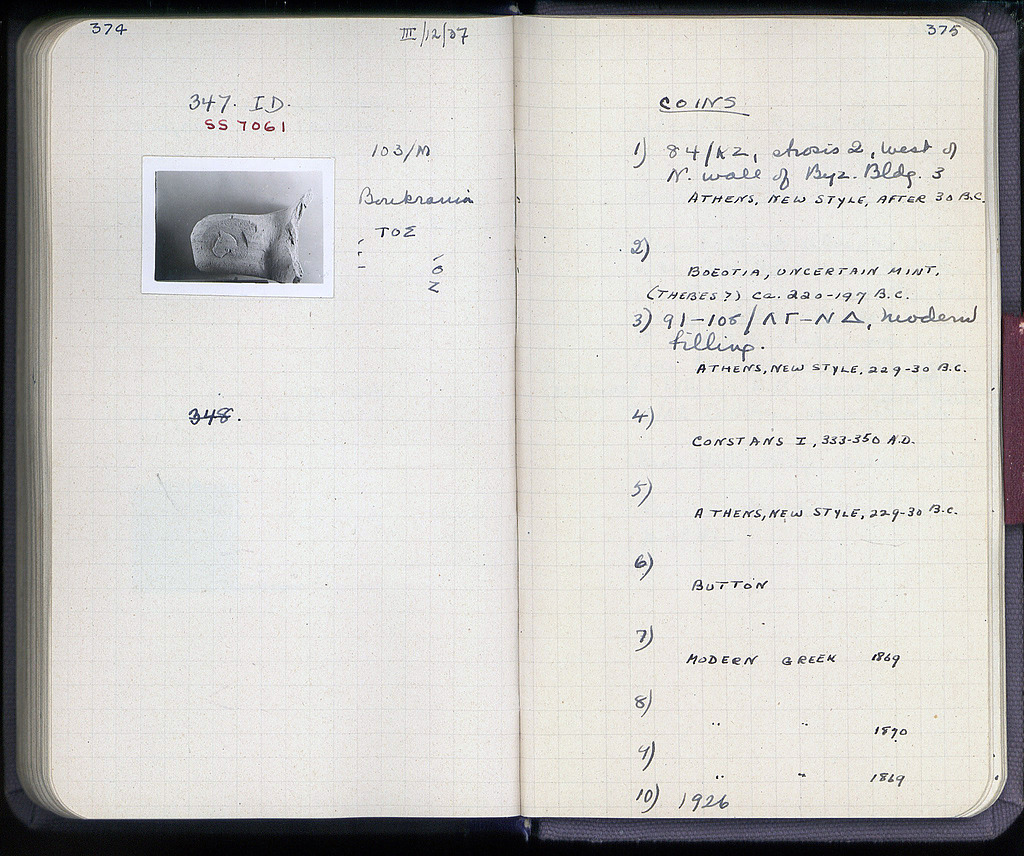 374
III/12/37
347. ID.
SS 7061
103/M
Boukrania
ΤΟΣ
348.
375
COINS
1) 84/KZ, strosis 2, west of
N. wall of Byz. Bldg. 3
ATHENS, NEW STYLE, AFTER 30 B.C.
2)
BOEOTIA, UNCERTAIN MINT,
(THEBES?) Ca. 220-197 B.C.
3) 91-106/ΛΓ-ΝΔ, modern
filling.
ATHENS, NEW STYLE, 229-30 B.C.
4)
CONSTANS I, 333-350 A.D.
5)
ATHENS, NEW STYLE, 229-30 B.C.
6)
BUTTON
7)
MODERN GREEK 1869
8)
" " 1870
9)
" " 1869
10) 1926